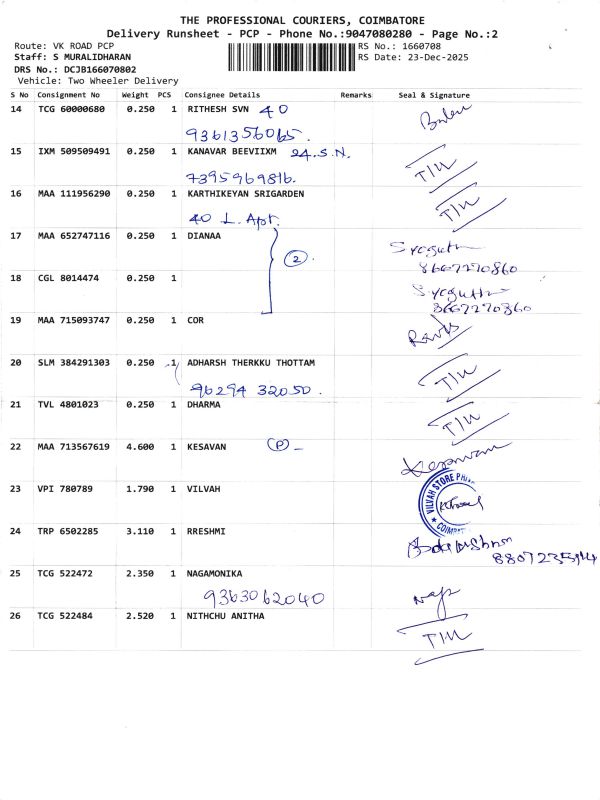 THE PROFESSIONAL COURIERS, COIMBATORE
Delivery Runsheet - PCP - Phone No.:9047080280 - Page No.:2
Route: VK ROAD PCP RS No.: 1660708
Staff: S MURALIDHARAN RS Date: 23-Dec-2025
DRS No.: DCJB166070802
Vehicle: Two Wheeler Delivery
S No Consignment No Weight PCS Consignee Details Remarks Seal & Signature
14 TCG 60000680 0.250 1 RITHESH SVN 40
9361356065.
15 IXM 509509491 0.250 1 KANAVAR BEEVIIXM 24.S.N. T/U
7395969816.
16 MAA 111956290 0.250 1 KARTHIKEYAN SRIGARDEN T/U
40 L. Apt.
17 MAA 652747116 0.250 1 DIANAA
(2). 8667270860
18 CGL 8014474 0.250 1
8667270860
19 MAA 715093747 0.250 1 COR
20 SLM 384291303 0.250 1 ADHARSH THERKKU THOTTAM T/U
96294 32050.
21 TVL 4801023 0.250 1 DHARMA T/U
22 MAA 713567619 4.600 1 KESAVAN (P) - Kesavan
23 VPI 780789 1.790 1 VILVAH VILVAH STORE
24 TRP 6502285 3.110 1 RRESHMI
25 TCG 522472 2.350 1 NAGAMONIKA
9363062040
26 TCG 522484 2.520 1 NITHCHU ANITHA T/U